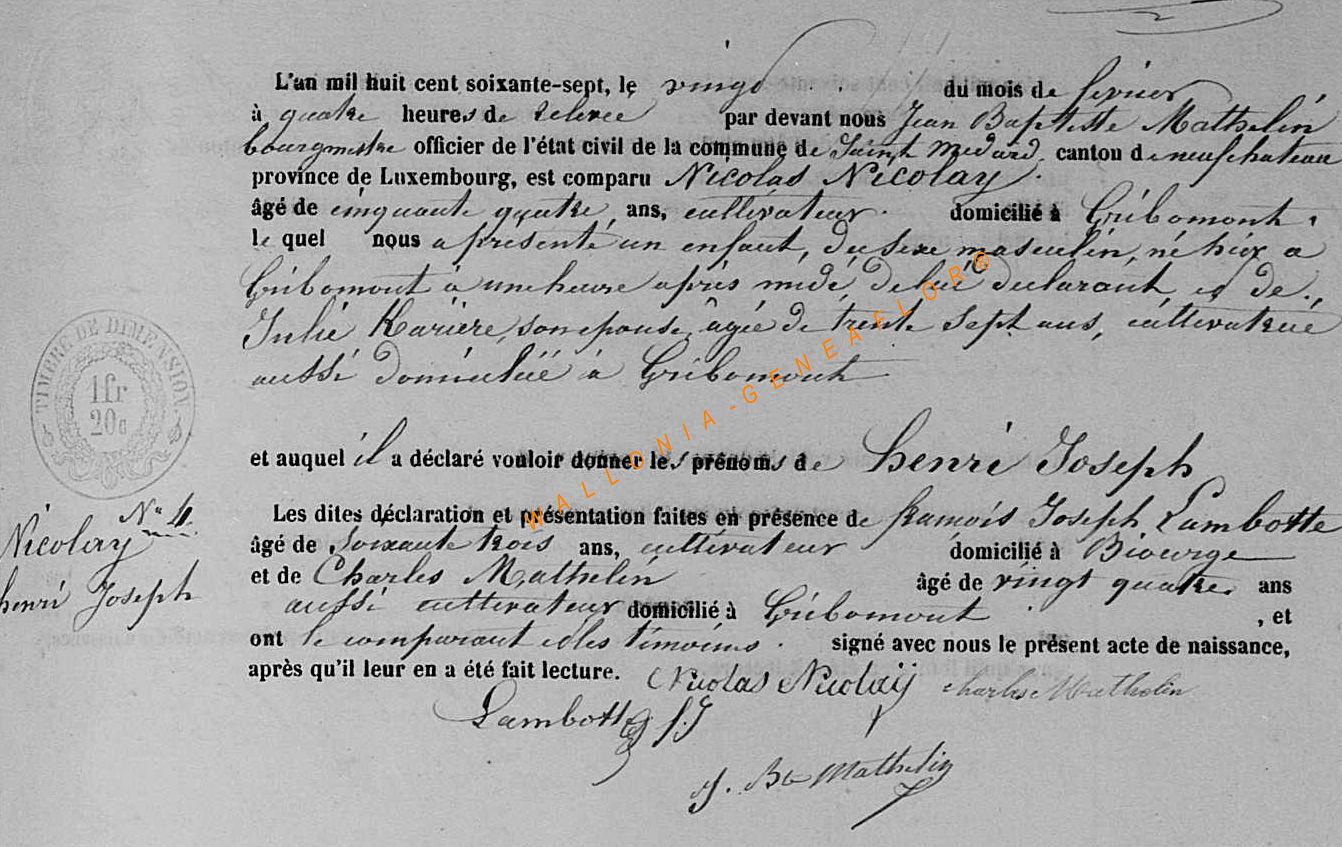 L'an mil huit cent soixante-sept, le vingt du mois de fevrier
à quatre heures de relevée par devant nous Jean Baptiste Mathelin
bourgmestre officier de l'état civil de la commune de Saint Medard, canton de neufchateau
province de Luxembourg, est comparu Nicolas Nicolay.
âgé de cinquante quatre ans, cultivateur domicilié à Gribomont,
le quel nous a présenté un enfant, du sexe masculin, né hier a
Gribomont à une heure après midi, de lui déclarant, et de
Julie Karière, son epouse, âgée de trente sept ans, cultivatrice
aussi domiciliée à Gribomont
et auquel il a déclaré vouloir donner les prénoms de henri Joseph
TIMBRE DE DIMENSION
1fr
20c
Nº 4.
Nicolay
henri Joseph
Les dites déclaration et présentation faites en présence de francois Joseph Lambotte
âgé de Soixante trois ans, cultivateur domicilié à Biourge
et de Charles Mathelin âgé de vingt quatre ans
aussi cultivateur domicilié à Gribomont, et
ont le comparant et les témoins signé avec nous le présent acte de naissance,
après qu'il leur en a été fait lecture. Nicolas Nicolaÿ charles Mathelin
Lambotte f. J
J. Bte Mathelin
WALLONIA-GENEAFLOB®